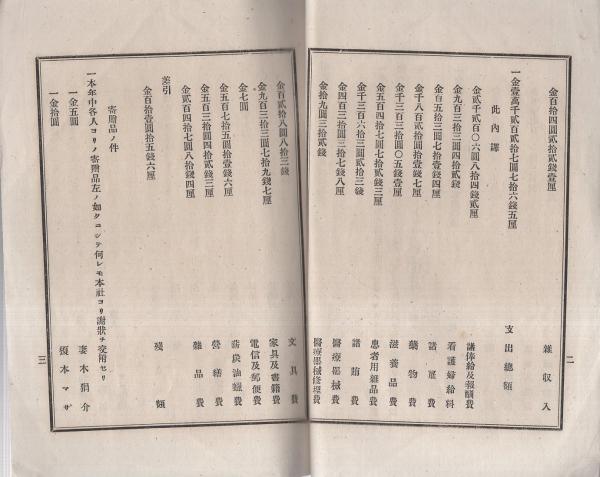 金百拾四圓貳拾貳錢壹厘 雜收入
一金壹萬千貳百貳拾七圓七拾六錢五厘 支出總額
此內譯
金貳千貳百〇六圓八拾四錢貳厘 諸俸給及報酬費
金九百三拾三圓四拾貳錢 看護婦給料
金百五拾三圓七拾壹錢四厘 諸雇費
金千八百貳拾圓拾壹錢貳厘 藥物費
金千三百三拾圓〇五錢壹厘 滋養品費
金五百四拾七圓貳拾貳錢三厘 患者用雜品費
金千三百六拾三圓貳拾三錢 諸賄費
金四百三拾圓三拾七錢八厘 醫療器械費
金拾九圓三拾貳錢 醫療器械修理費
二
金百貳拾八圓八拾三錢 文具費
金九百三拾三圓七拾九錢七厘 家具及書籍費
金七圓 電信及郵便費
金五百七拾五圓拾壹錢六厘 薪炭油蠟費
金五百三拾圓四拾貳錢三厘 營繕費
金貳百四拾七圓八拾錢四厘 雜品費
差引
金百拾壹圓拾五錢六厘 殘額
寄贈品ノ件
一本年中各人ヨリノ寄贈品左ノ如クニシテ何レモ本社ヨリ謝狀ヲ交附セリ
一金五圓 妻木狷介
一金拾圓 本マサ
三